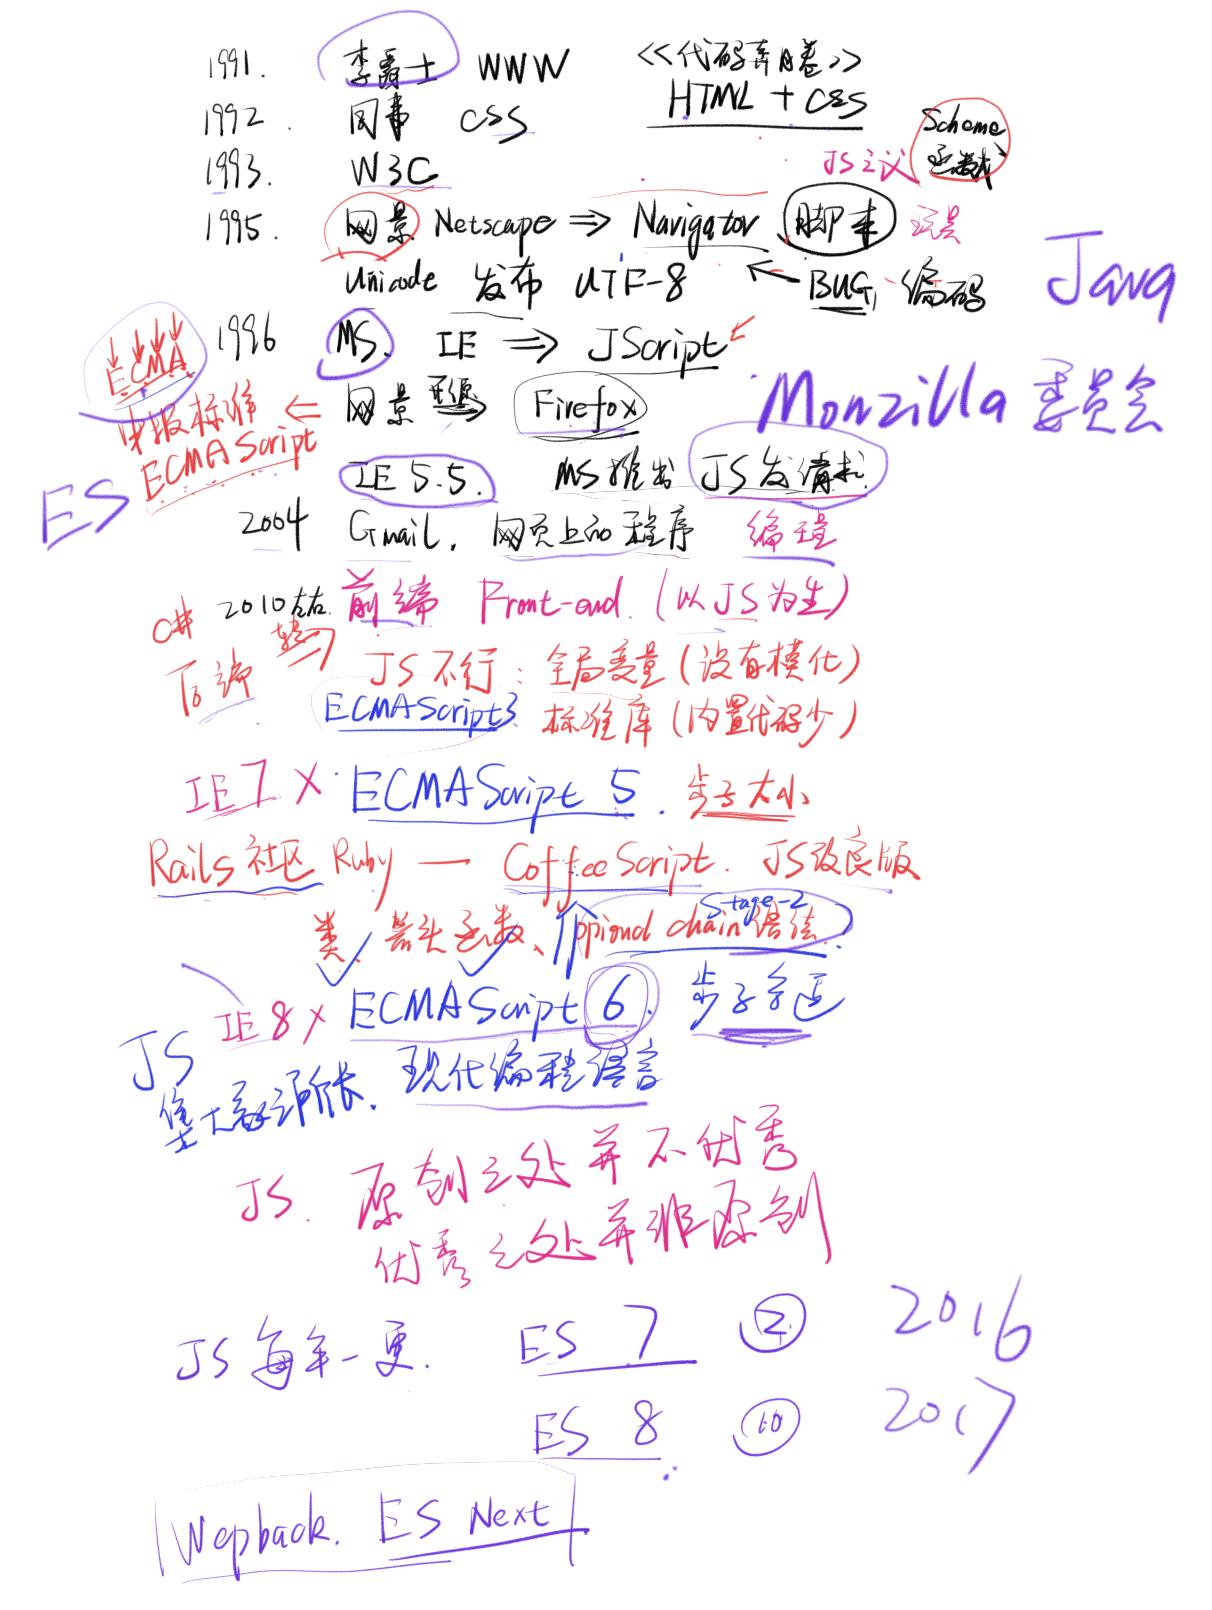 1991. 李爵士 WWW 《代码奔月卷》
HTML + CSS
1992. 同事 CSS
Scheme
函数式
1993. W3C
JS之父
1995. 网景 Netscape ⇒ Navigator 脚本
Unicode 发布 UTF-8 ← BUG, 编码
Java
1996 MS. IE ⇒ JScript
ECMA
网景 开源 → Firefox
Monzilla 委员会
申报标准
ECMAScript
ES
IE 5.5. MS推出 JS发请求
2004 Gmail, 网页上的程序 编程
C# 2010左右 前端 Front-end. (以JS为生)
后端 转 →
JS不行: 全局变量 (没有模化)
ECMAScript3 标准库 (内置代码少)
IE7 X ECMAScript 5. 步子太小
Rails社区 Ruby — CoffeeScript. JS改良版
Stage-2
类、箭头函数、ppional chain语法
IE 8 X ECMAScript 6. 步子合适
JS
集大家之所长. 现代编程语言
JS. 原创之处并不优秀
优秀之处并非原创
JS每年一更. ES 7 2 2016
ES 8 10 2017
Wepback. ES Next